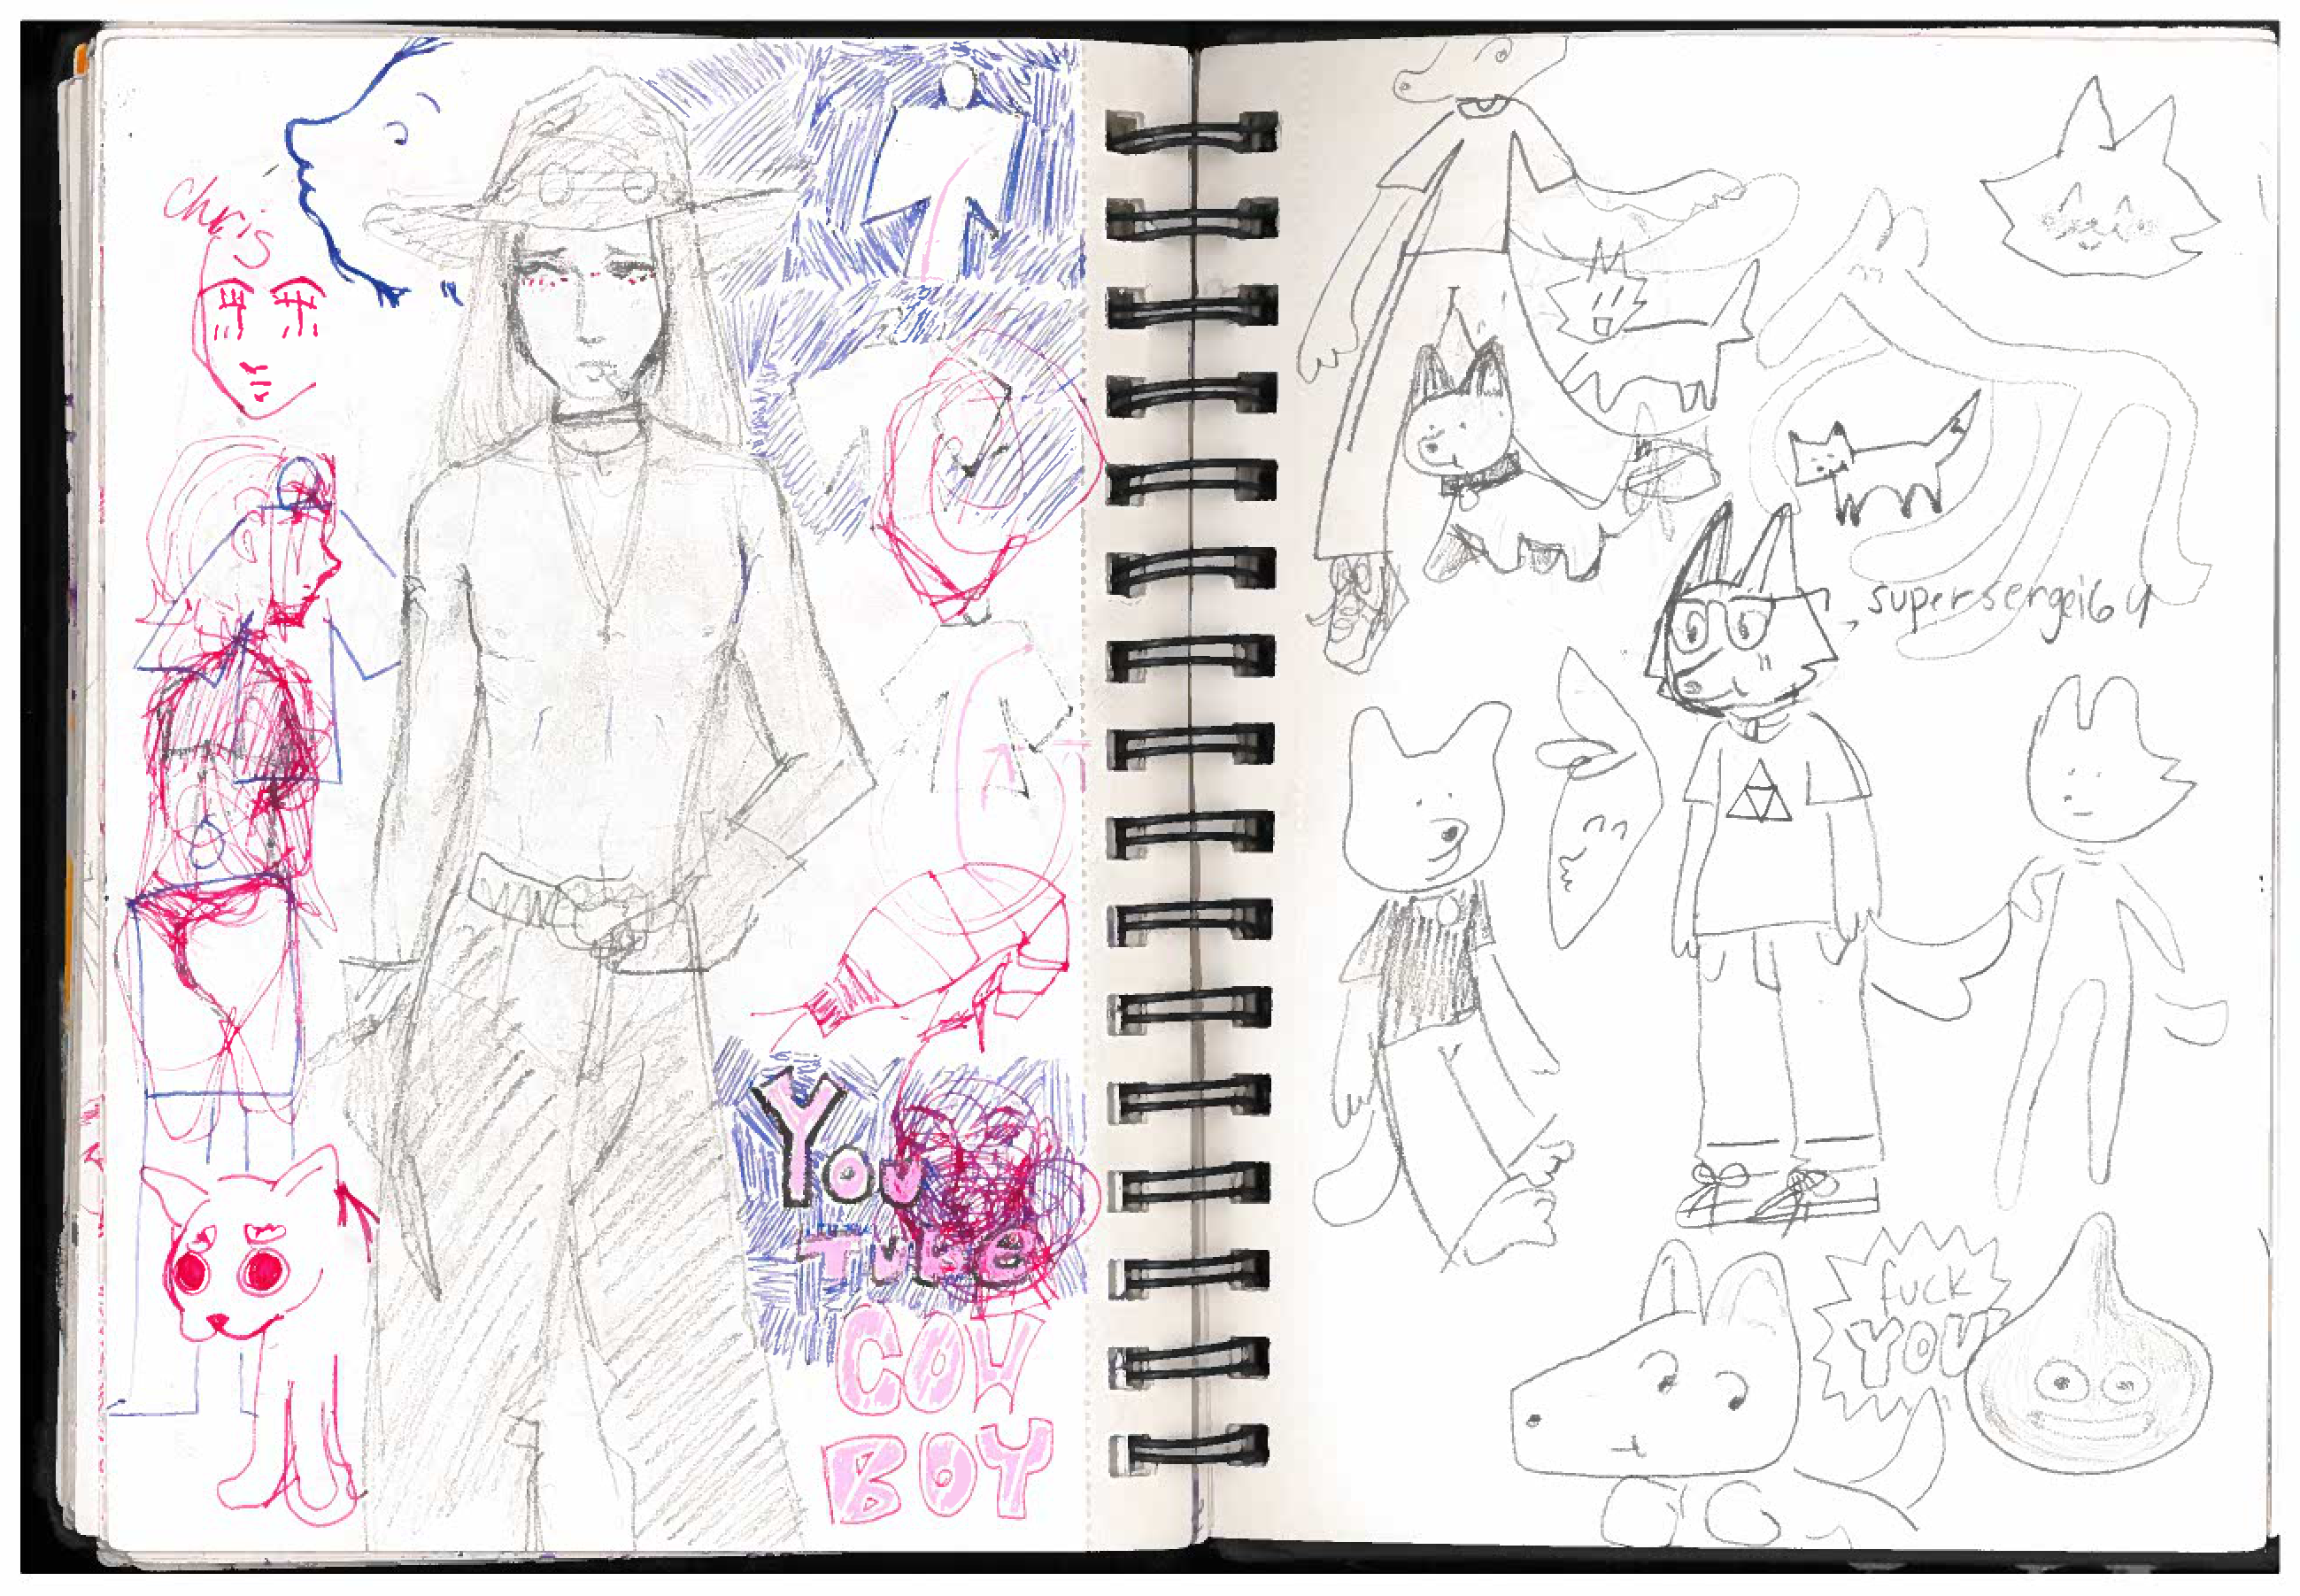 chris
You
Tube
COW
BOY
supersergei64
FUCK
YOU